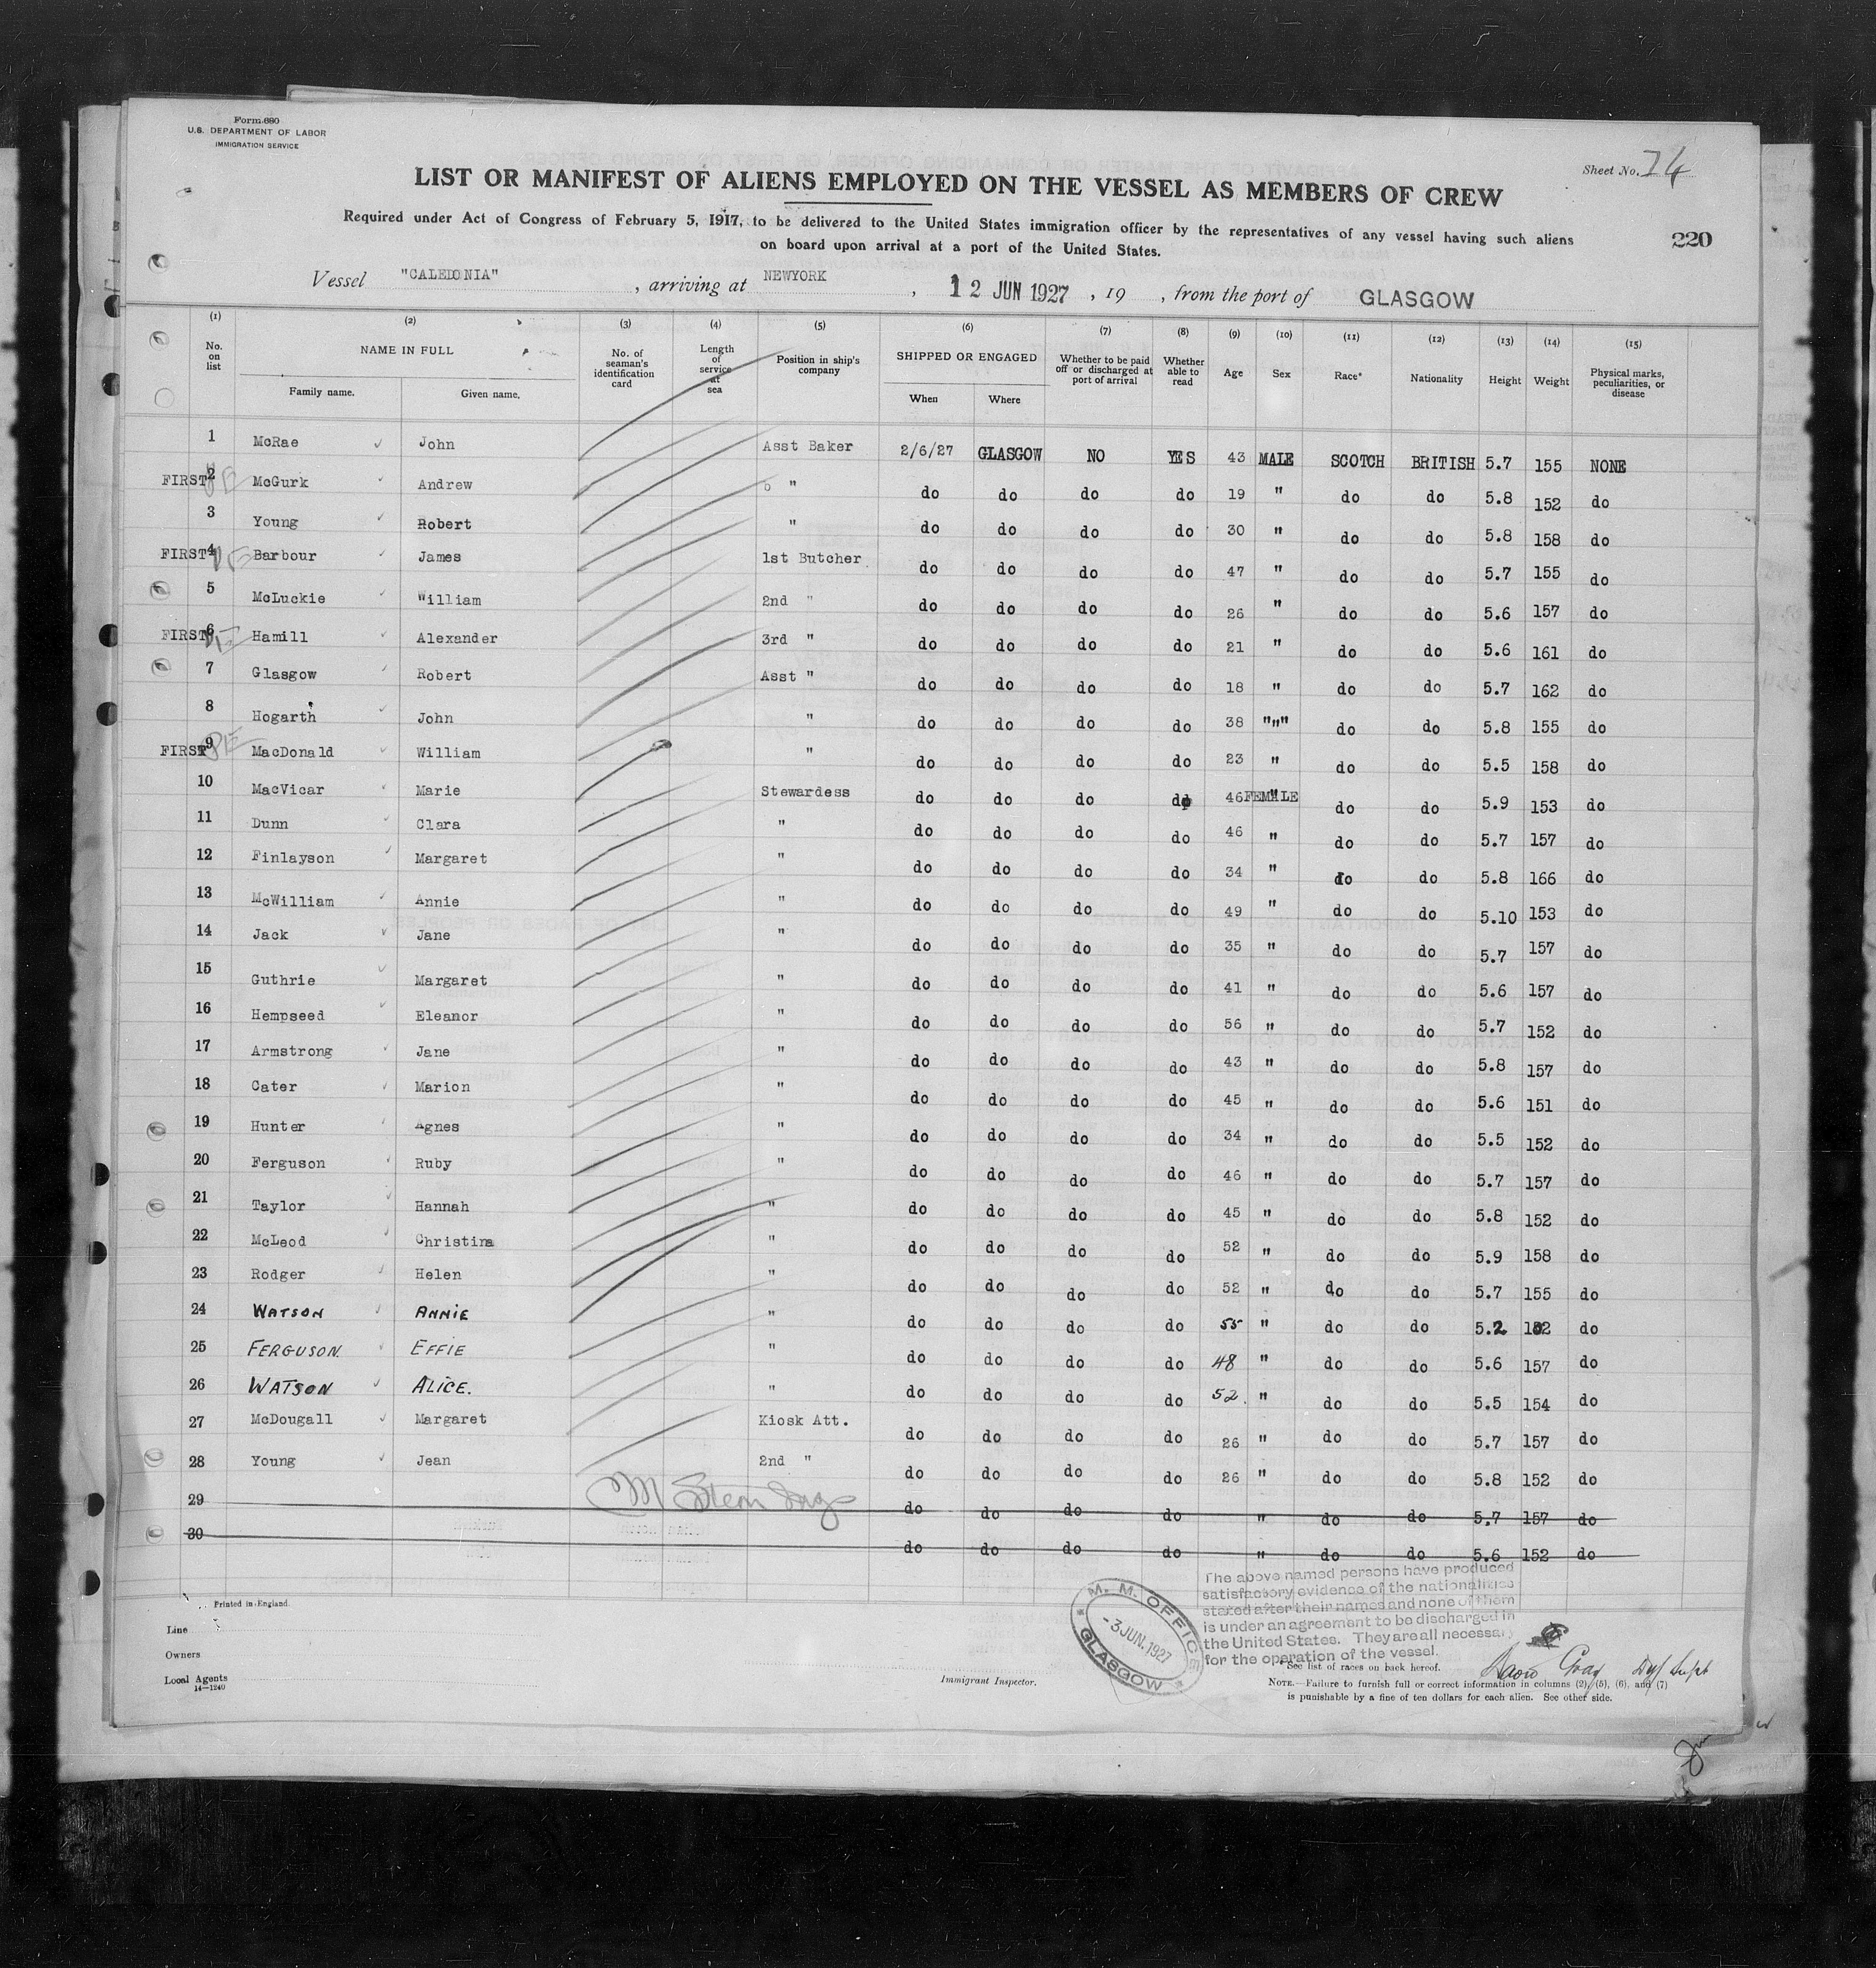 Form 680
U.S. DEPARTMENT OF LABOR
IMMIGRATION SERVICE
Sheet No. 74
LIST OR MANIFEST OF ALIENS EMPLOYED ON THE VESSEL AS MEMBERS OF CREW
Required under Act of Congress of February 5, 1917, to be delivered to the United States immigration officer by the representatives of any vessel having such aliens
on board upon arrival at a port of the United States.
220
Vessel "CALEDONIA", arriving at NEWYORK, 12 JUN 1927, 19 , from the port of GLASGOW
(1) (2) (3) (4) (5) (6) (7) (8) (9) (10) (11) (12) (13) (14) (15)
No. on list NAME IN FULL No. of seaman's identification card Length of service at sea Position in ship's company SHIPPED OR ENGAGED Whether to be paid off or discharged at port of arrival Whether able to read Age Sex Race* Nationality Height Weight Physical marks, peculiarities, or disease
Family name. Given name. When Where
1 McRae John Asst Baker 2/6/27 GLASGOW NO YES 43 MALE SCOTCH BRITISH 5.7 155 NONE
FIRST 2 McGurk Andrew " do do do do 19 " do do 5.8 152 do
3 Young Robert " do do do do 30 " do do 5.8 158 do
FIRST 4 Barbour James 1st Butcher do do do do 47 " do do 5.7 155 do
5 McLuckie William 2nd " do do do do 26 " do do 5.6 157 do
FIRST 6 Hamill Alexander 3rd " do do do do 21 " do do 5.6 161 do
7 Glasgow Robert Asst " do do do do 18 " do do 5.7 162 do
8 Hogarth John " do do do do 38 """ do do 5.8 155 do
FIRST 9 MacDonald William " do do do do 23 " do do 5.5 158 do
10 MacVicar Marie Stewardess do do do do 46 FEMALE do do 5.9 153 do
11 Dunn Clara " do do do do 46 " do do 5.7 157 do
12 Finlayson Margaret " do do do do 34 " do do 5.8 166 do
13 McWilliam Annie " do do do do 49 " do do 5.10 153 do
14 Jack Jane " do do do do 35 " do do 5.7 157 do
15 Guthrie Margaret " do do do do 41 " do do 5.6 157 do
16 Hempseed Eleanor " do do do do 56 " do do 5.7 152 do
17 Armstrong Jane " do do do do 43 " do do 5.8 157 do
18 Cater Marion " do do do do 45 " do do 5.6 151 do
19 Hunter Agnes " do do do do 34 " do do 5.5 152 do
20 Ferguson Ruby " do do do do 46 " do do 5.7 157 do
21 Taylor Hannah " do do do do 45 " do do 5.8 152 do
22 McLeod Christina " do do do do 52 " do do 5.9 158 do
23 Rodger Helen " do do do do 52 " do do 5.7 155 do
24 WATSON ANNIE " do do do do 55 " do do 5.2 do
25 FERGUSON. EFFIE " do do do do 48 " do do 5.6 157 do
26 WATSON ALICE. " do do do do 52. " do do 5.5 154 do
27 McDougall Margaret Kiosk Att. do do do do 26 " do do 5.7 157 do
28 Young Jean 2nd " do do do do 26 " do do 5.8 152 do
29 do do do do " do do 5.7 157 do
30 do do do do " do do 5.6 152 do
The above named persons have produced
satisfactory evidence of the nationalities
stated after their names and none of them
is under an agreement to be discharged in
the United States. They are all necessary
for the operation of the vessel.
M. M. OFFICE
-3 JUN. 1927
GLASGOW
Printed in England.
Line
Owners
Local Agents
14—1240
Immigrant Inspector.
* See list of races on back hereof.
NOTE.—Failure to furnish full or correct information in columns (2), (5), (6), and (7)
is punishable by a fine of ten dollars for each alien. See other side.